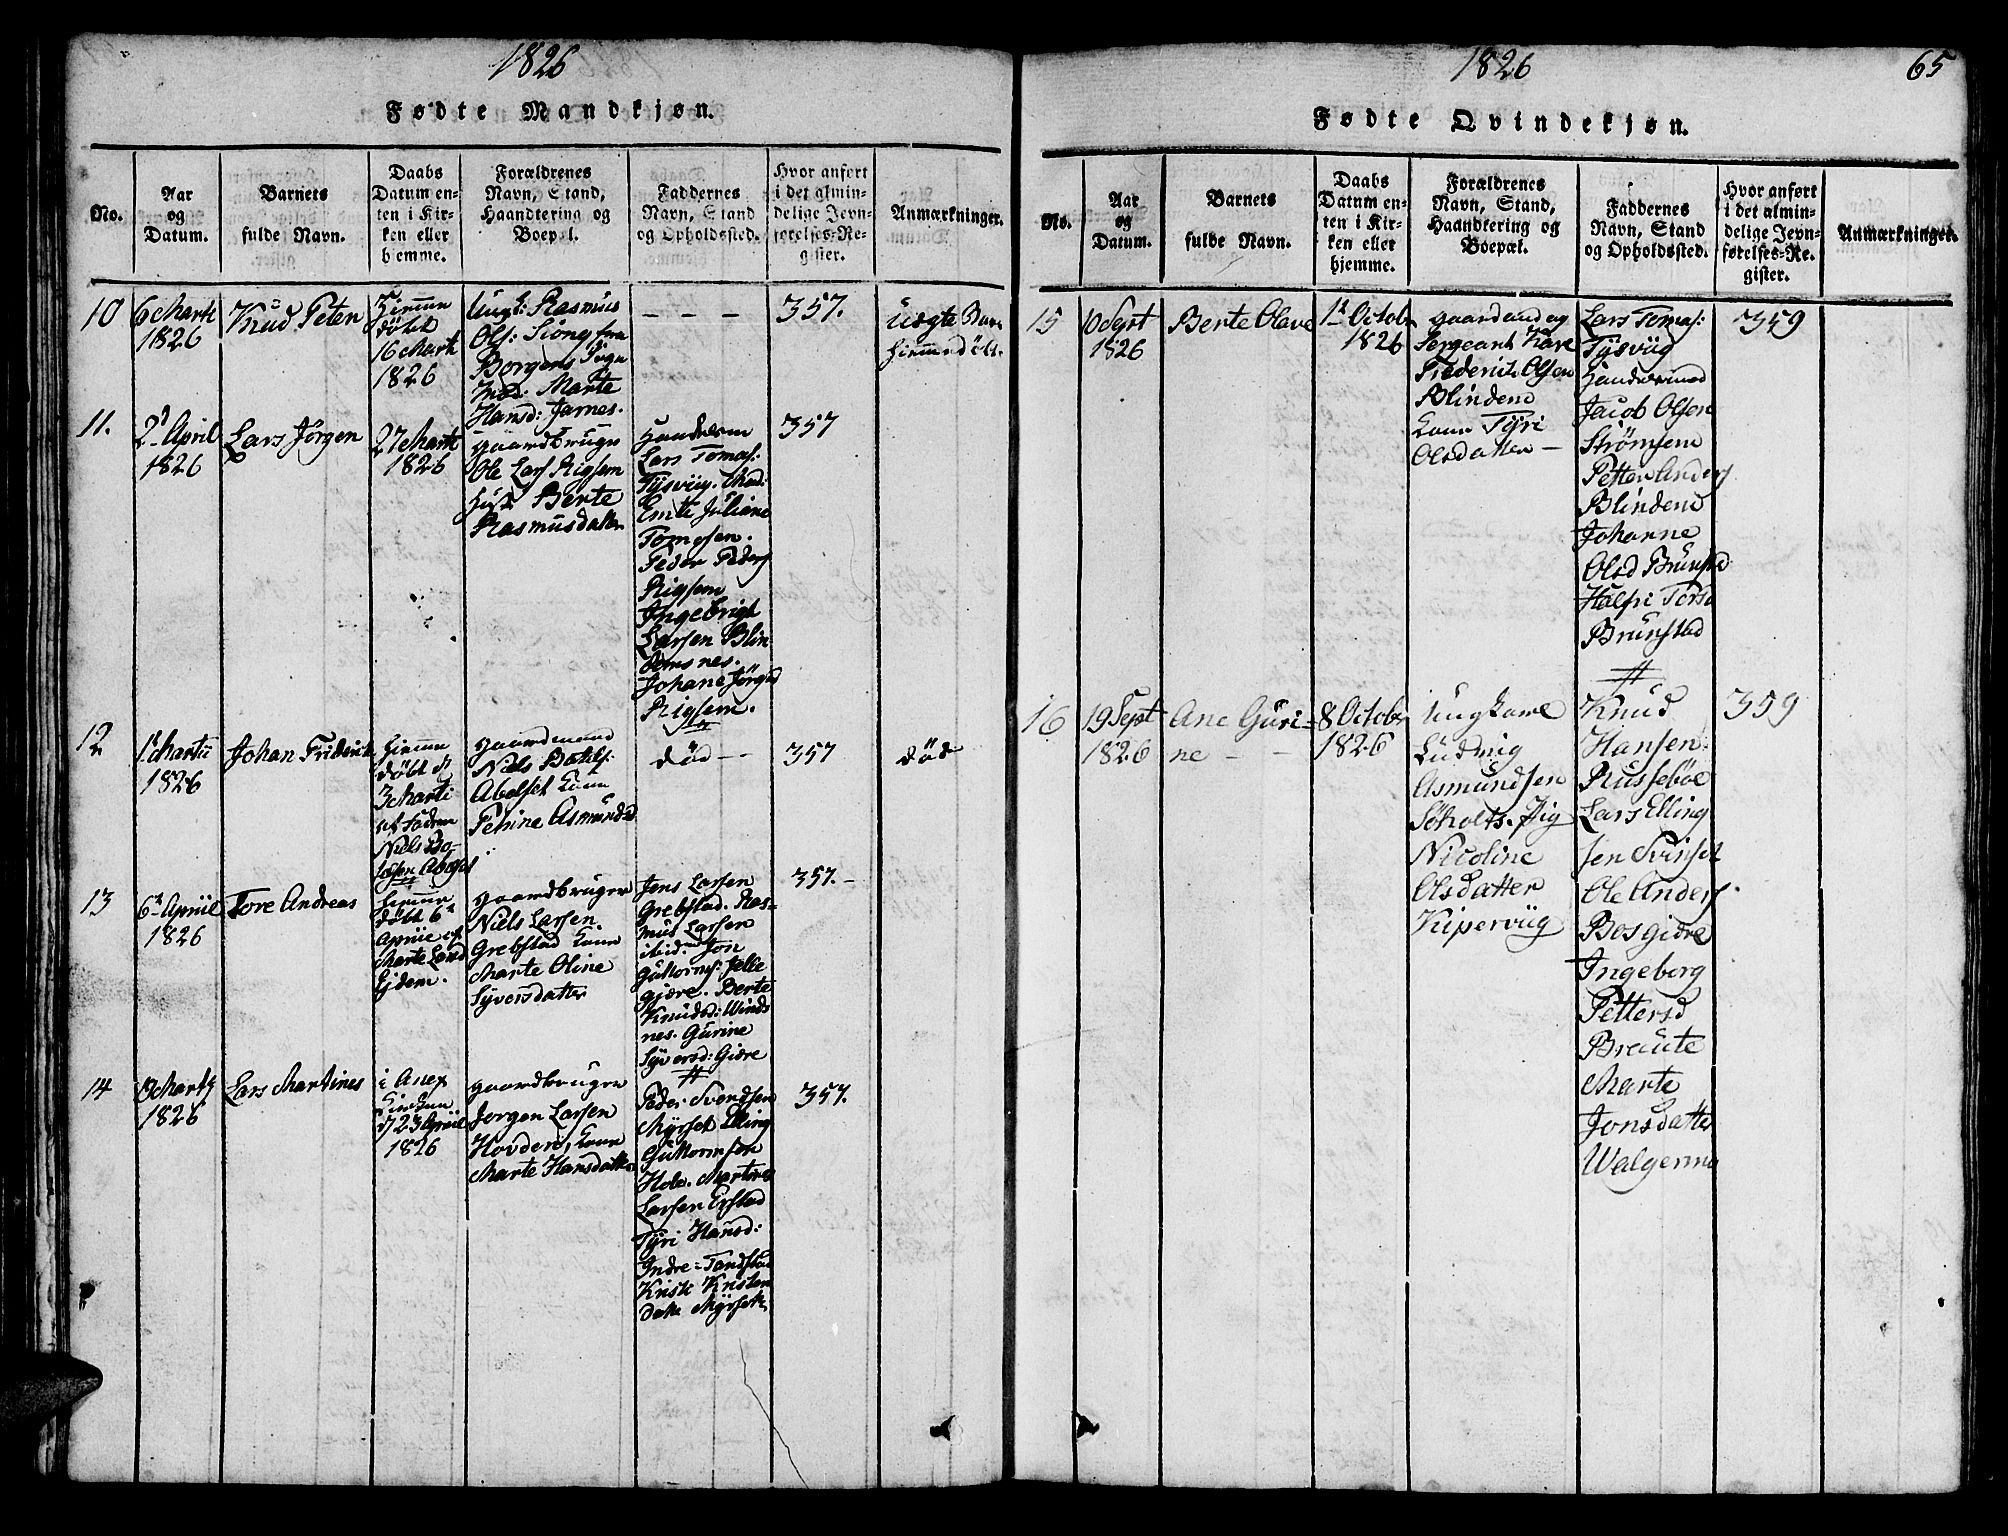 1826
Fødte Mandkjøn.
No.
Aar
og
Datum.
Barnets
fulde Navn.
Daabs
Datum en-
ten i Kir-
ken eller
hjemme.
Forældrenes
Navn, Stand,
Haandtering og
Boepæl.
Faddernes
Navn, Stand
og Opholdssted.
Hvor anført
i det almin-
delige Jevn-
førelses-Re-
gister.
Anmærkninger.
10
6 Marti
1826
Knud Peter
Hiemme
døbt
16 Marti
1826
Ungk: Rasmus
Ols: Siong fra
Borgens Sogn
Mod: Marte
Hansd: Jarnes.
— — —
357.
Uægte Barn
hiemmedøbt.
11.
2 April
1826
Lars Jörgen
27 Marti
1826
gaardbruger
Ole Lars Rigsem
Hust. Berte
Rasmusdatter
Lars Tomas:
Tysvüg. Mad:
Emte Juliane
Tomesen.
Peder Peders
Rigsem
Ingebrigt
Larsen Blin
demsnes.
Johane Jörgsd
Rigsem.
357
12
1 Martii
1826
Johan Friderich
hiemme
døbt d
3 Marti
af Faderen
Niels Bo-
telsen Abelset
gaardmand
Niels Botels:
Abelset Kone
Petrine Asmundsd
död — —
357
död
13
6 Apriil
1826
Tore Andreas
hiemme
døbt 6
Apriil af
Marte Land
Ejdem.
gaardbruger
Niels Larsen
Grebstad Kone
Marte Oline
Syversdatter
Jens Larsen
Grebstad. Ras-
mus Larsen
ibid. Jon
Guttorms: Jelle
gjære. Berte
Knudsd: Winds
nes. Gurine
Syversd: Giære
357.—
14
Martz
1826
Lars Martines
i Anex
Kirken
d 23 Apriil
1826
gaardbruger
Jorgen Larsen
Hovden, Kone
Marte Hansdatter
Peder Svendsen
Myrset Elling
Guttormsen
Hole. Martines
Larsen Erstad
Tyri Hansd:
Indre-Tandstad
Kristi Kristen
datt. Myrset
357.
1826
65
Fødte Qvindekjøn.
No.
Aar
og
Datum.
Barnets
fulde Navn.
Daabs
Datum en-
ten i Kir-
ken eller
hjemme.
Forældrenes
Navn, Stand,
Haandtering og
Boepæl.
Faddernes
Navn, Stand
og Opholdssted.
Hvor anført
i det almin-
delige Jevn-
førelses-Re-
gister.
Anmærkninger.
15
10 Sept
1826
Berte Olave
1 Octob
1826
gaardmand og
Sergeant Kare
Frederich Olsen
Blindem
Kone Tyri
Olsdatter —
Lars Tomas:
Tysvüg
Jacob Olsen
Strömsem
Petter Anders
Blindem
Johanne
Olsd Brunstad
Halfri Torsd
Brunstad
359
16
19 Sept
1826
Ane Guri-
ne —
8 Octobr
1826
Ungkarl
Ludvig
Asmundsen
Söholt. Pig
Nicoline
Olsdatter
Kipervüg
Knud
Hansen
Russebøe
Lars Elling
sen Svinset
Ole Anders
Bosgiære
Ingeborg
Pettersd
Braute
Marte
Jonsdatter
Walgermo
359